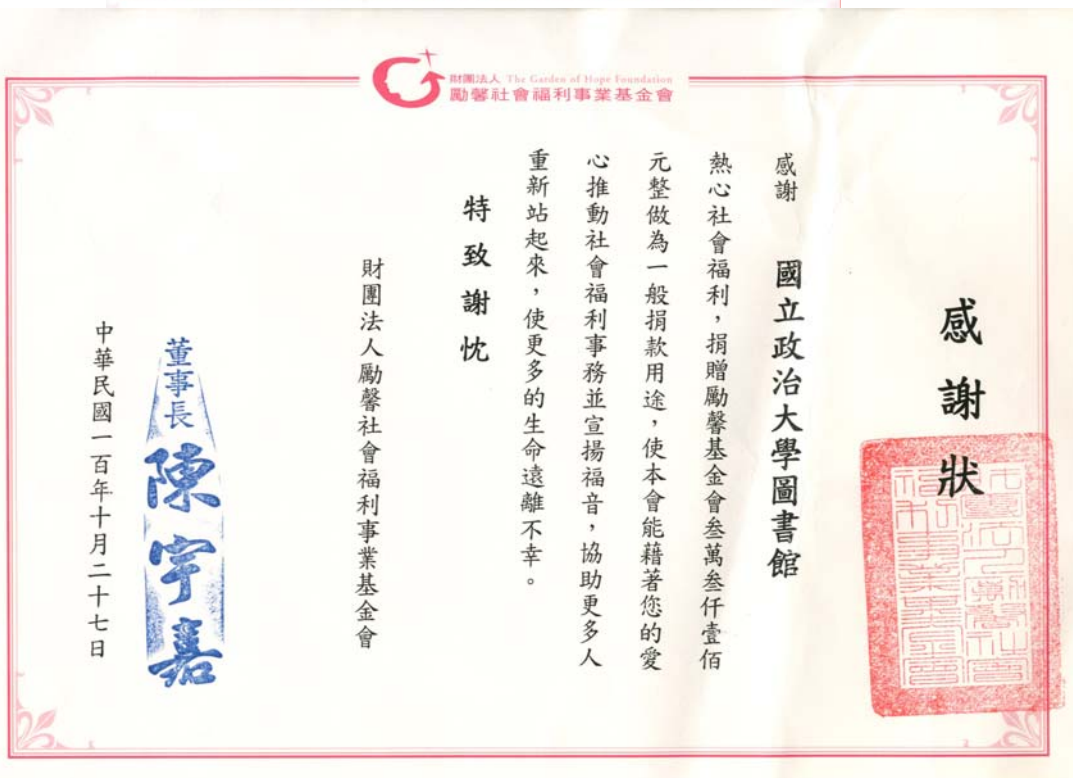 財團法人 The Garden of Hope Foundation
勵馨社會福利事業基金會
感謝狀
感謝 國立政治大學圖書館
熱心社會福利，捐贈勵馨基金會叁萬叁仟壹佰
元整做為一般捐款用途，使本會能藉著您的愛
心推動社會福利事務並宣揚福音，協助更多人
重新站起來，使更多的生命遠離不幸。
特致謝忱
財團法人勵馨社會福利事業基金會
董事長 陳宇嘉
中華民國一百年十月二十七日